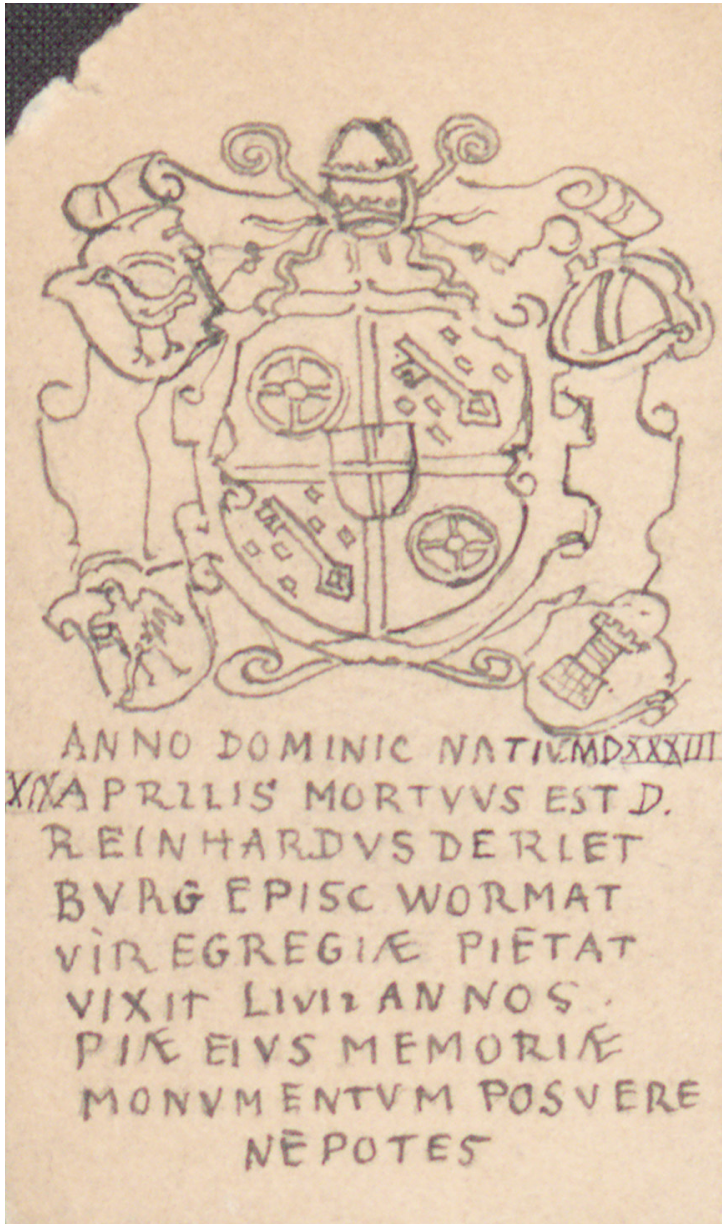 ANNO DOMINIC NATIV MDXXXIII
XIX APRILIS MORTVVS EST D.
REINHARDVS DE RIET
BVRG EPISC WORMAT
VIR EGREGIÆ PIETAT
VIXIT ANNOS.
PIÆ EIVS MEMORIÆ
MONVMENTVM POSVERE
NEPOTES